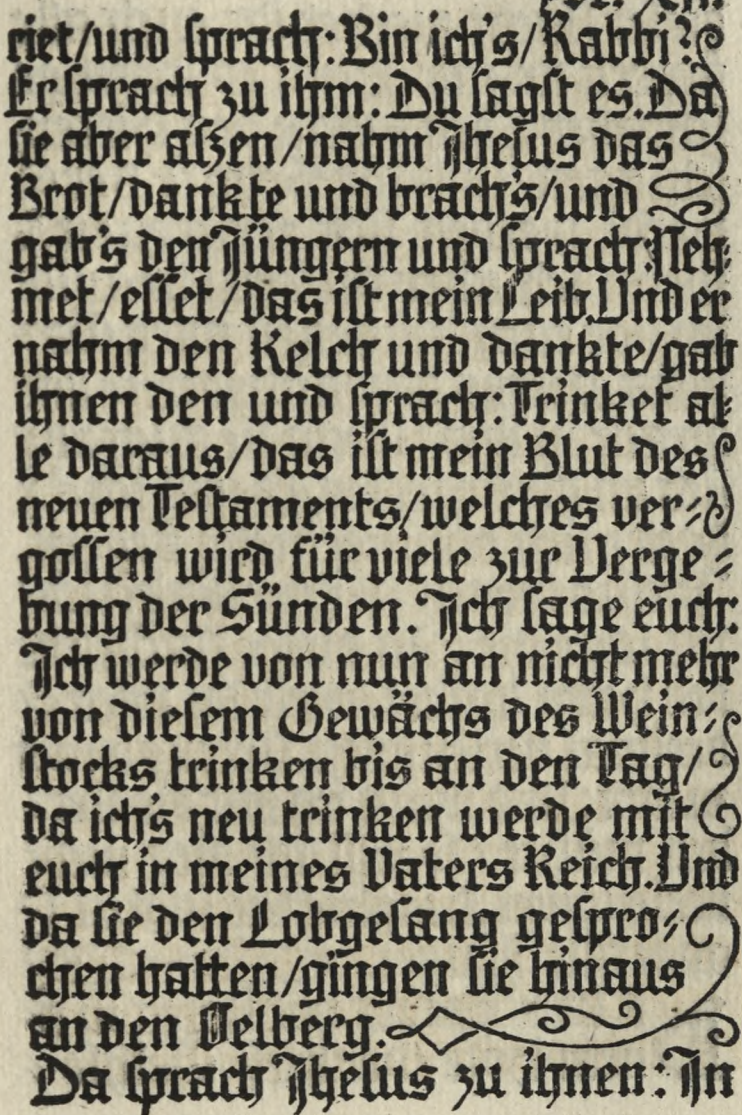 riet/und sprach: Bin ich's/Rabbi?
Er sprach zu ihm: Du sagst es. Da
sie aber aßen/nahm Jhesus das
Brot/dankte und brach's/und
gab's den Jüngern und sprach: Neh-
met/esset/das ist mein Leib. Und er
nahm den Kelch und dankte/gab
ihnen den und sprach: Trinket al-
le daraus/das ist mein Blut des
neuen Testaments/welches ver-
gossen wird für viele zur Verge-
bung der Sünden. Ich sage euch:
Ich werde von nun an nicht mehr
von diesem Gewächs des Wein-
stocks trinken bis an den Tag/
da ich's neu trinken werde mit
euch in meines Vaters Reich. Und
da sie den Lobgesang gespro-
chen hatten/gingen sie hinaus
an den Oelberg.
Da sprach Jhesus zu ihnen: In